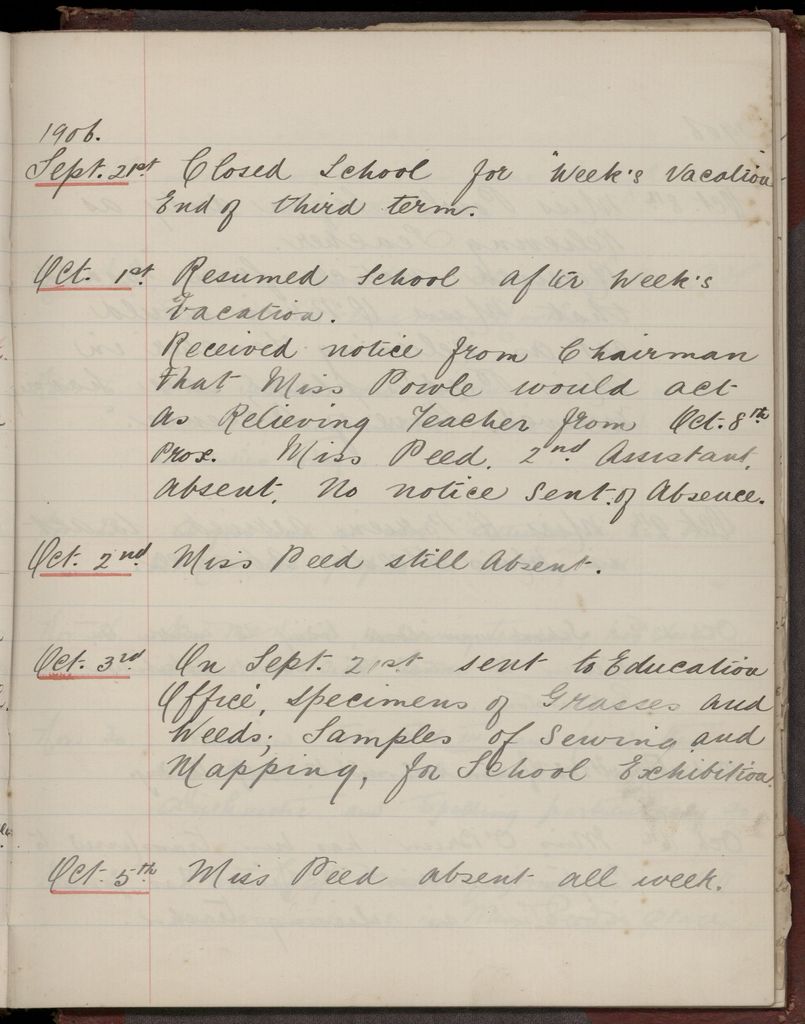 1906.
Sept. 21st Closed School for "Week's Vacation
End of third term.
Oct. 1st Resumed School after Week's
Vacation.
Received notice from Chairman
that Miss Powle would act
as Relieving Teacher from Oct. 8th
Prox. Miss Peed, 2nd Assistant,
absent. No notice sent of Absence.
Oct. 2nd Miss Peed still Absent.
Oct. 3rd On Sept. 21st sent to Education
Office, specimens of Grasses and
Weeds; Samples of Sewing and
Mapping, for School Exhibition.
Oct. 5th Miss Peed absent all week.